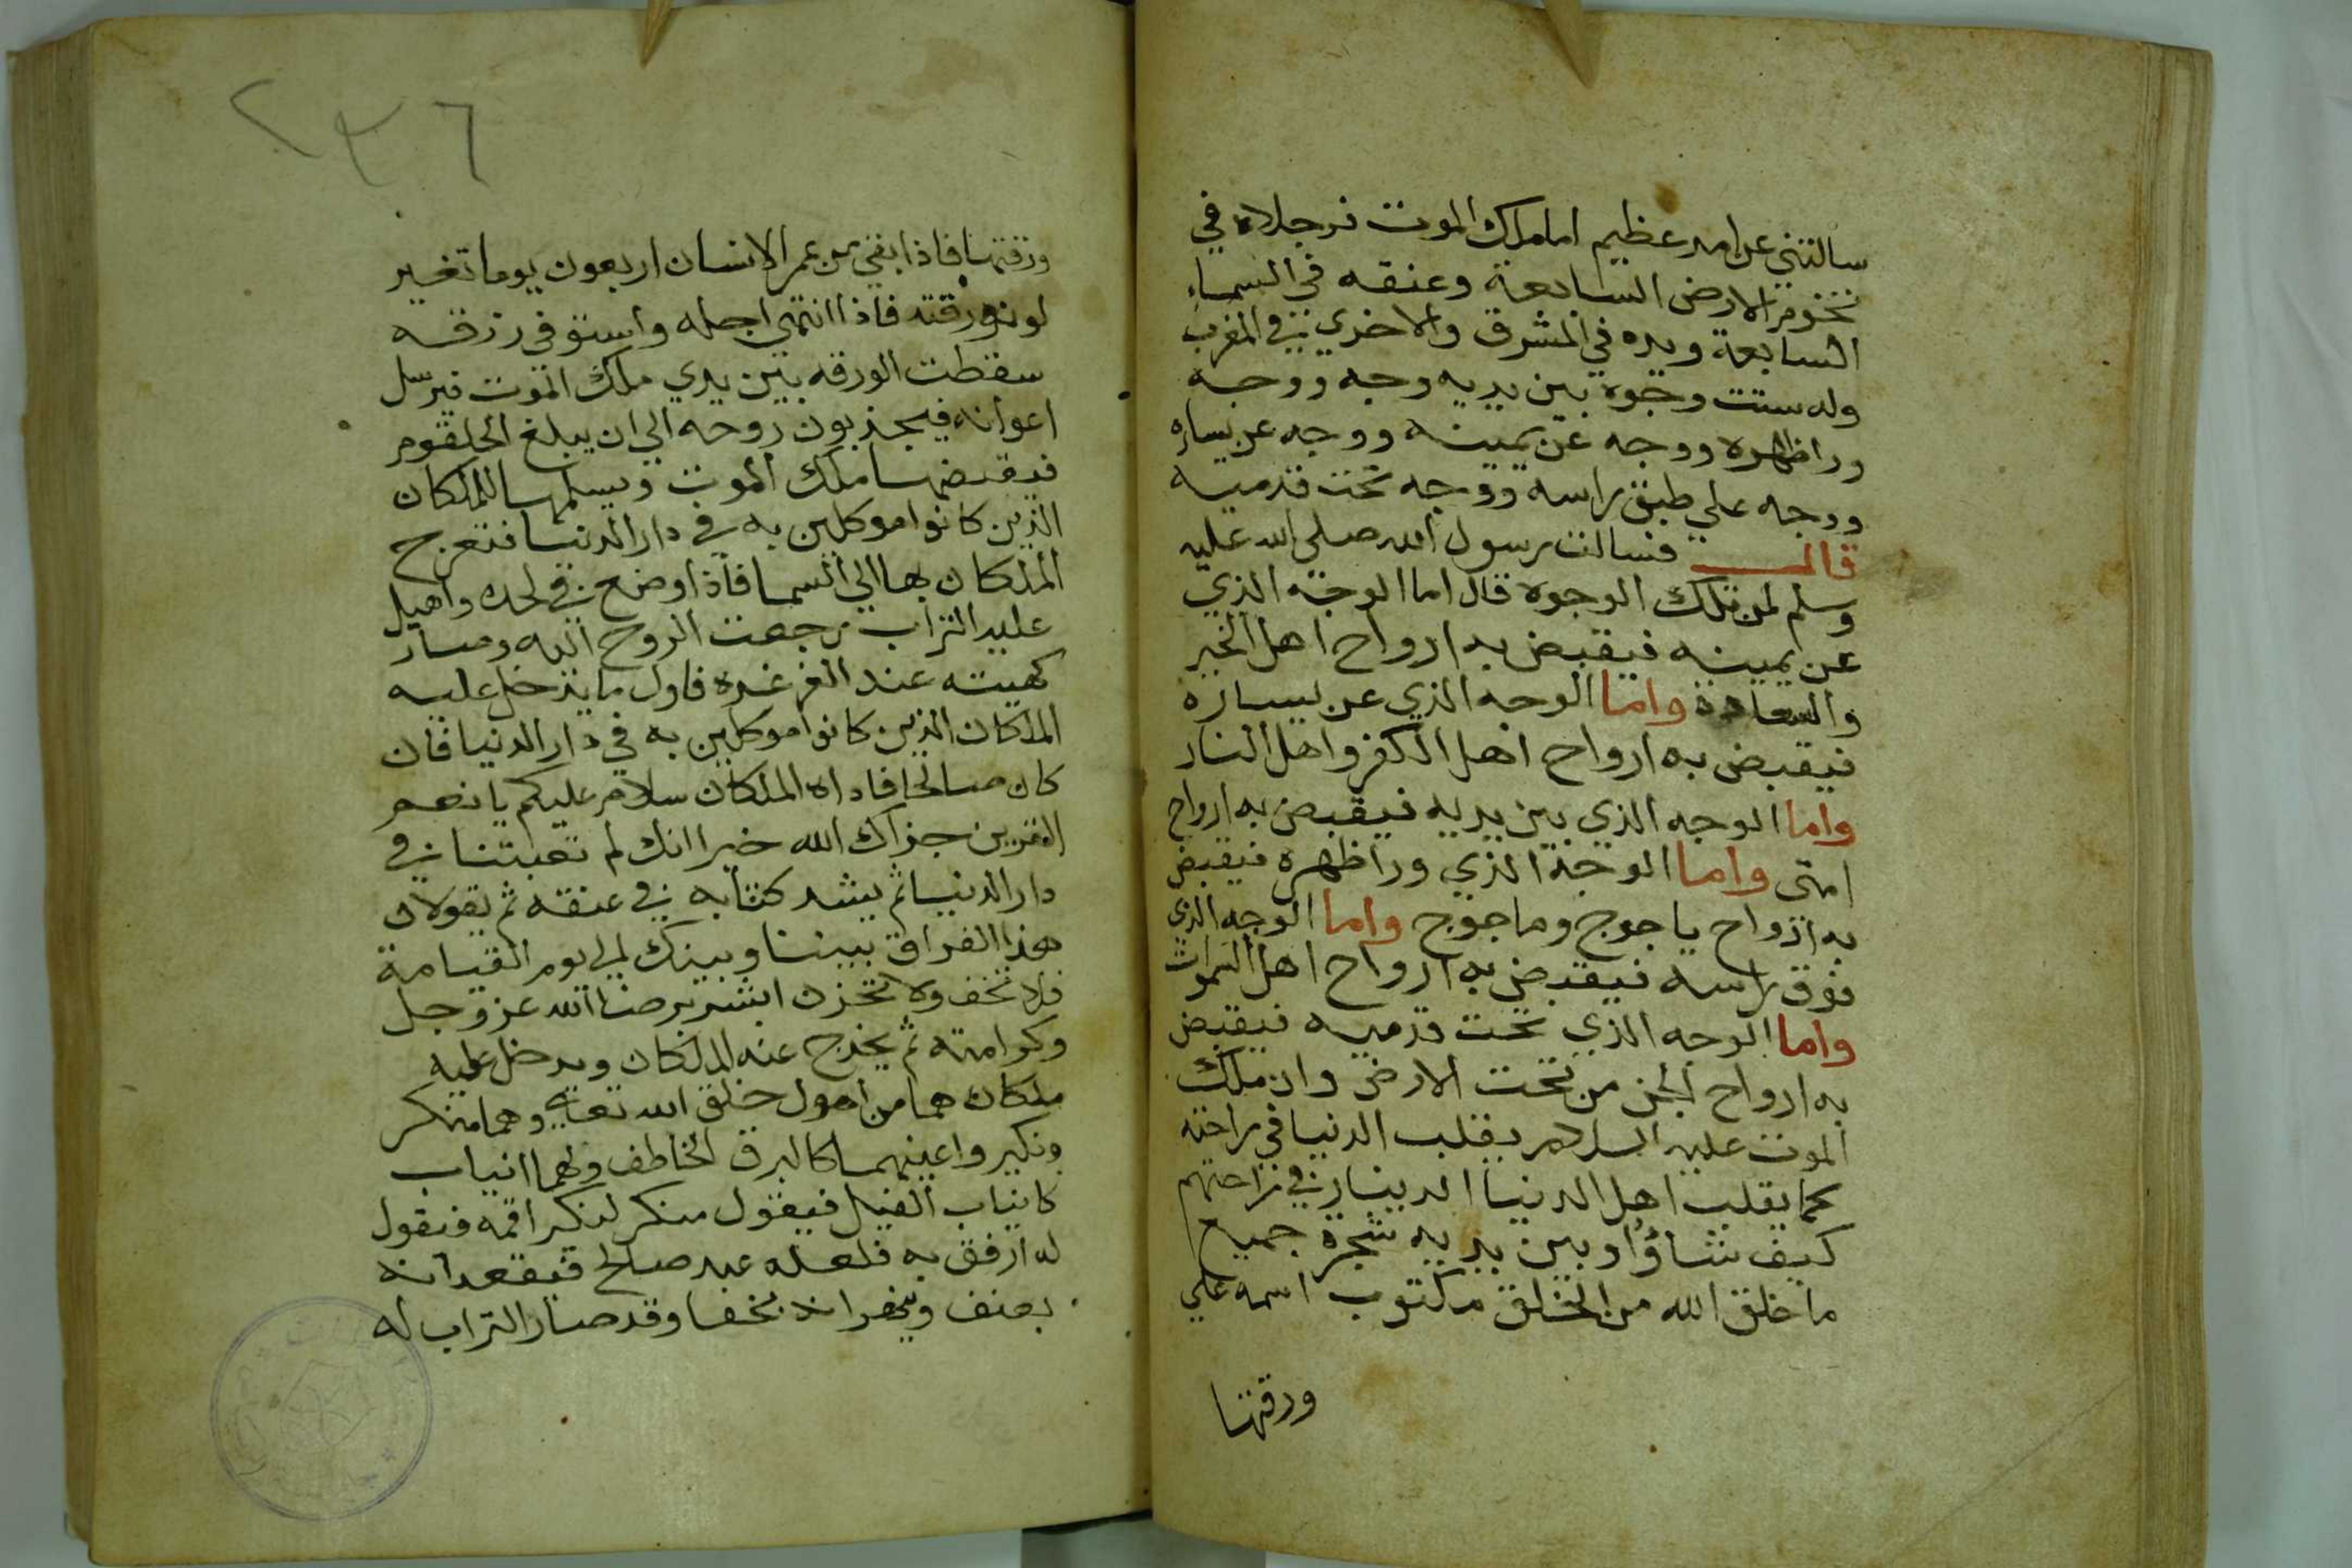 سالتني عن امر عظيم اما ملك الموت فرجلاه في
تخوم الارض السابعة وعنقه في السماء
السابعة ويده في المشرق والاخري في المغرب
وله ستت وجوه بين يديه وجه ووجه
ورا ظهره ووجه عن يمينه ووجه عن يساره
ووجه علي طبق راسه ووجه تحت قدميه
قال فسالت رسول الله صلي الله عليه
وسلم لمن تلك الوجوه قال اما الوجه الذي
عن يمينه فيقبض به ارواح اهل الخير
والسعادة واما الوجه الذي عن يساره
فيقبض به ارواح اهل الكفر واهل النار
واما الوجه الذي بين يديه فيقبض به ارواح
امتي واما الوجه الذي ورا ظهره فيقبض
به ارواح ياجوج وماجوج واما الوجه الذي
فوق راسه فيقبض به ارواح اهل السموات
واما الوجه الذي تحت قدميه فيقبض
به ارواح الجن من تحت الارض وان ملك
الموت عليه السلام يقلب الدنيا في راحته
كما يقلب اهل الدنيا الدينار في راحتهم
كيف شاؤا وبين يديه شجرة جميع
ما خلق الله من الخلق مكتوب اسمه علي
ورقتها
٢٣٦
ورقتها فاذا بقي من عمر الانسان اربعون يوما تغير
لون ورقته فاذا انتهي اجله واستوفي رزقه
سقطت الورقه بين يدي ملك الموت فيرسل
اعوانه فيجذبون روحه الي ان يبلغ الحلقوم
فيقبضها ملك الموت ويسلمها للملكان
الذين كانوا موكلين به في دار الدنيا فتعرج
الملكان بها الي السما فاذا وضع في لحده واهيل
عليه التراب رجعت الروح اليه وصار
كهيته عند الغرغره فاول ما يدخل عليه
الملكان الذين كانوا موكلين به في دار الدنيا فان
كان صالحا فاداه الملكان سلام عليكم يا نعم
القرين جزاك الله خيرا انك لم تعبتنا في
دار الدنيا ثم يشد كتابه في عنقه ثم يقولان
هذا الفراق بيننا وبينك الي يوم القيامة
فلا تخف ولا تحزن ابشر برضا الله عز وجل
وكرامته ثم يخرج عنه الملكان ويدخل عليه
ملكان هما من اهول خلق الله تعالي وهما منكر
ونكير واعينهما كالبرق الخاطف ولهما انياب
كانياب الفيل فيقول منكر لنكر اقمه فيقول
له ارفق به فلعله عبد صالح فيقعدانه
بعنف وقد صار التراب له